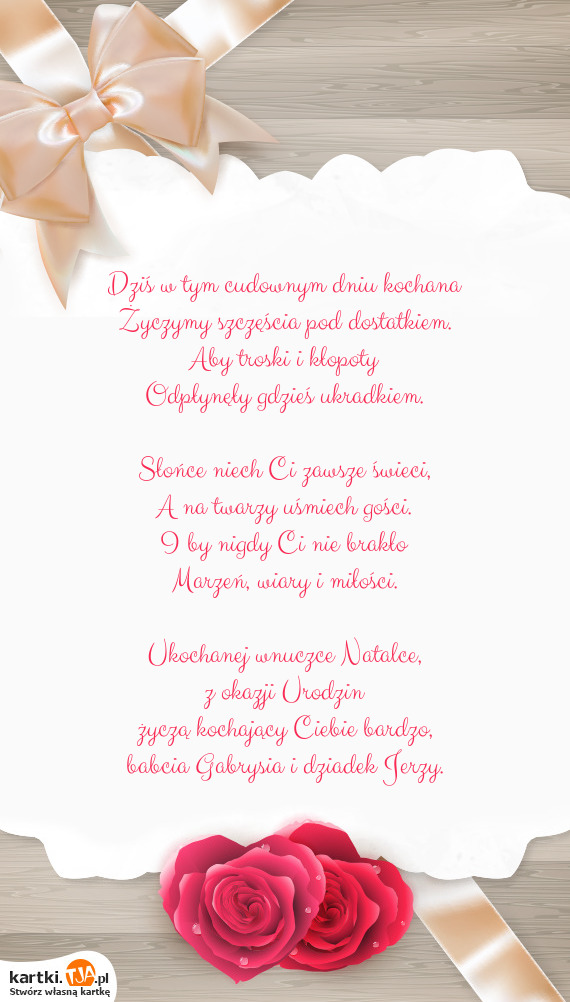 Dziś w tym cudownym dniu kochana
Życzymy szczęścia pod dostatkiem.
Aby troski i kłopoty
Odpłynęły gdzieś ukradkiem.
Słońce niech Ci zawsze świeci,
A na twarzy uśmiech gości.
I by nigdy Ci nie brakło
Marzeń, wiary i miłości.
Ukochanej wnuczce Natalce,
z okazji Urodzin
życzą kochający Ciebie bardzo,
babcia Gabrysia i dziadek Jerzy.
kartki.TJA.pl
Stwórz własną kartkę